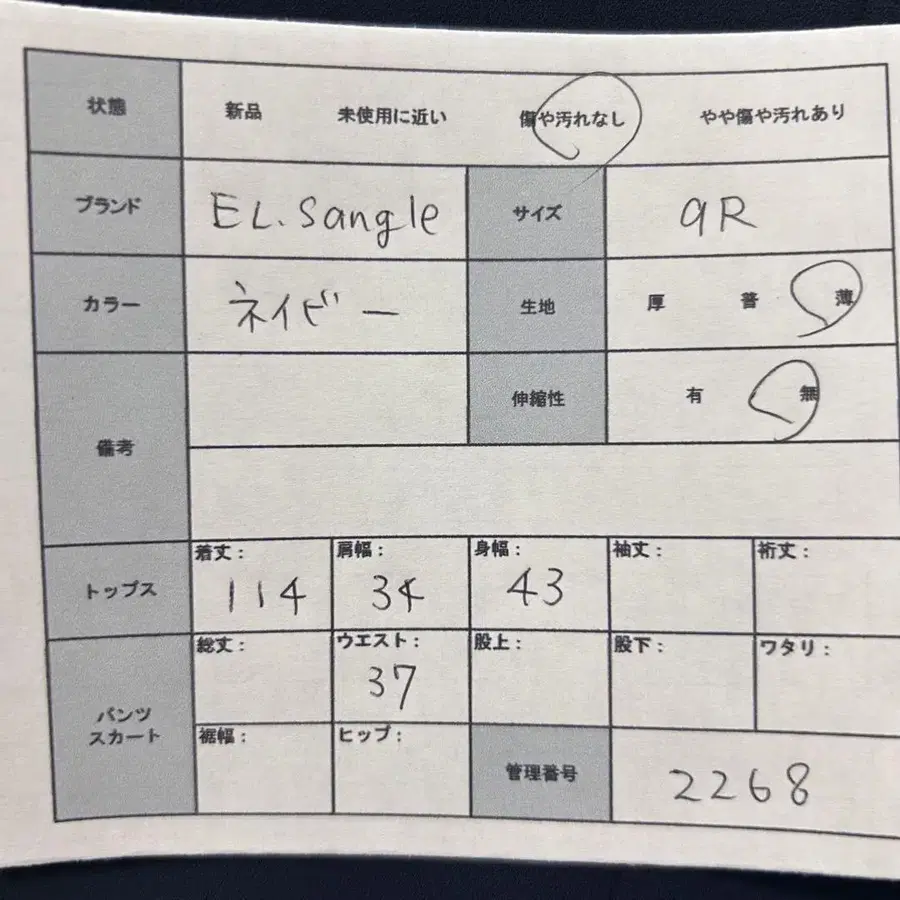 状態 新品 未使用に近い 傷や汚れなし やや傷や汚れあり
ブランド EL.Sangle サイズ 9R
カラー ネイビー 生地 厚 普 薄
備考 伸縮性 有 無
トップス 着丈: 肩幅: 身幅: 袖丈: 裄丈:
114 34 43
パンツ
スカート
総丈: ウエスト: 股上: 股下: ワタリ:
37
裾幅: ヒップ: 管理番号 2268